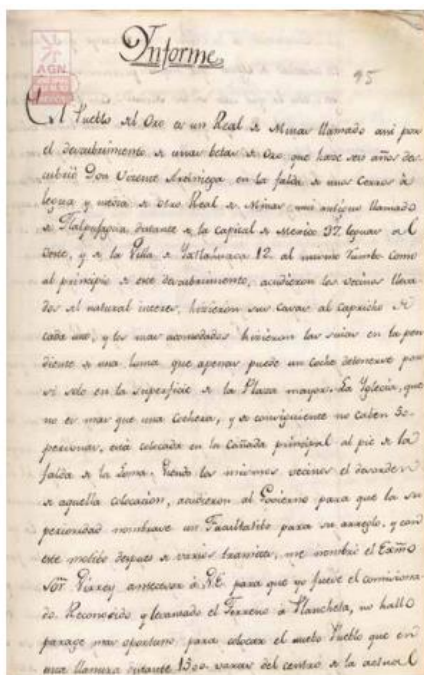 AGN
Ynforme
95
El Pueblo del Oro es un Real de Minas llamado asi por
el descubrimiento de unas betas de Oro que hase seis años des
cubrió Don Vicente en la falda de unos Cerros á
legua y media de otro Real de Minas mas antiguo llamado
de Tlalpujagua distante de la capital de Mexico 37. leguas al
Oeste, y de la Villa de Yxtlahuaca 12. al mismo rumbo como
al principio de este descubrimiento, acudieron los vecinos lleva
dos del natural interes, hicieron sus casas al capricho de
cada uno, y los mas acomodados hicieron las suias en la pen
diente de una loma que apenas puede un coche detenerse por
si solo en la superficie de la Plaza mayor. La Yglecia, que
no es mas que una cochera, y de consiguiente no caben 50.
personas, está colocada en la Cañada principal al pie de la
falda de la Loma. Viendo los mismos vecinos el desorden
de aquella colocacion, acudieron al Govierno para que la su
perioridad nombrase un Facultatibo para su arreglo, y con
este motibo despues de varios tramites, me nombró el Exmo
Sor. Virrey antecesor á V.E. para que yo fuese el comisiona
do. Reconosido y levantado el Terreno á Plancheta, no halló
parage mas oportuno para colocar el nuebo Pueblo que en
una llanura distante 1300. varas del centro de la actual